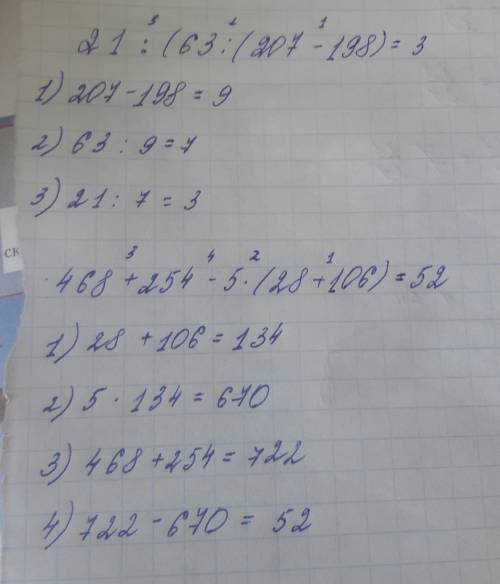 3 2 1
21 : (63 : (207 - 198) = 3
1) 207 - 198 = 9
2) 63 : 9 = 7
3) 21 : 7 = 3
ск
3 4 2 1
468 + 254 - 5 · (28 + 106) = 52
1) 28 + 106 = 134
2) 5 · 134 = 670
3) 468 + 254 = 722
4) 722 - 670 = 52